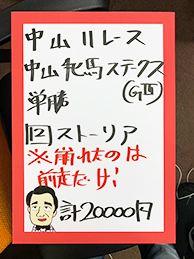 中山11レース
中山牝馬ステークス
(GⅢ)
単勝
回ストーリア
※崩れたのは
前走だけ!
計20000円